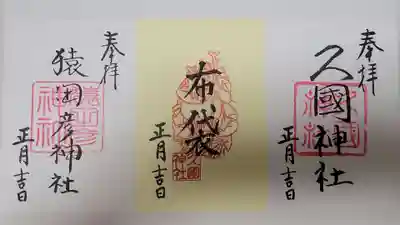 奉拝
久國神社
正月吉日
布袋
久國神社
正月吉日
奉拝
猿田彦神社
正月吉日